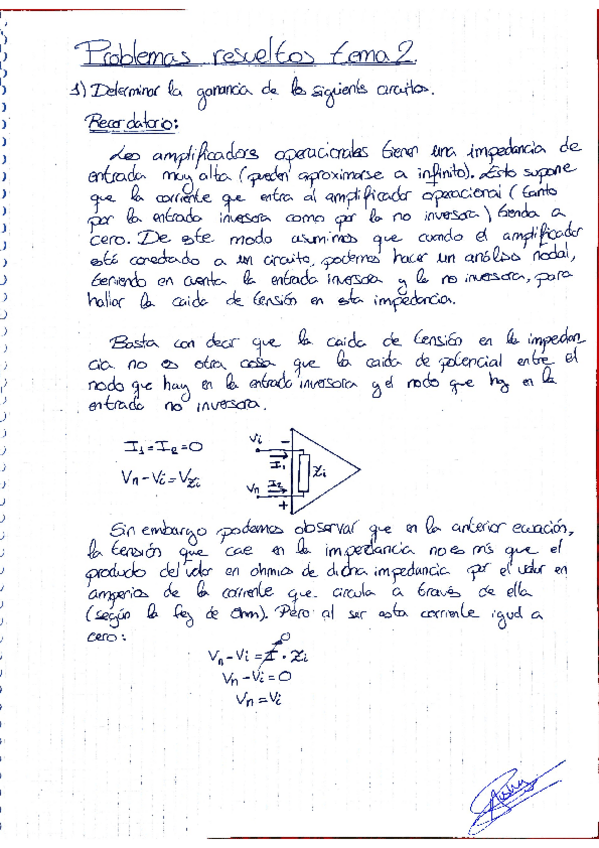 Problemas resueltos tema 2.
1) Determinar la ganancia de los siguientes circuitos.
Recordatorio:
Los amplificadores operacionales tienen una impedancia de
entrada muy alta (pueden aproximarse a infinito). Esto supone
que la corriente que entra al amplificador operacional (tanto
por la entrada inversora como por la no inversora) tienda a
cero. De este modo asumimos que cuando el amplificador
esté conectado a un circuito, podemos hacer un análisis nodal,
teniendo en cuenta la entrada inversora y la no inversora, para
hallar la caida de tensión en esta impedancia.
Basta con decir que la caida de tensión en la impedan
cia no es otra cosa que la caida de potencial entre el
nodo que hay en la entrada inversora y el nodo que hay en la
entrada no inversora.
I1=I2=0
Vn-Vi=Vzi
Vi
-
I1
Zi
Vn
I2
+
Sin embargo podemos observar que en la anterior ecuación,
la tensión que cae en la impedancia no es más que el
producto del valor en ohmios de dicha impedancia por el valor en
amperios de la corriente que circula a través de ella
(según la ley de Ohm). Pero al ser esta corriente igual a
cero:
0
Vn-Vi=I·Zi
Vn-Vi=0
Vn=Vi